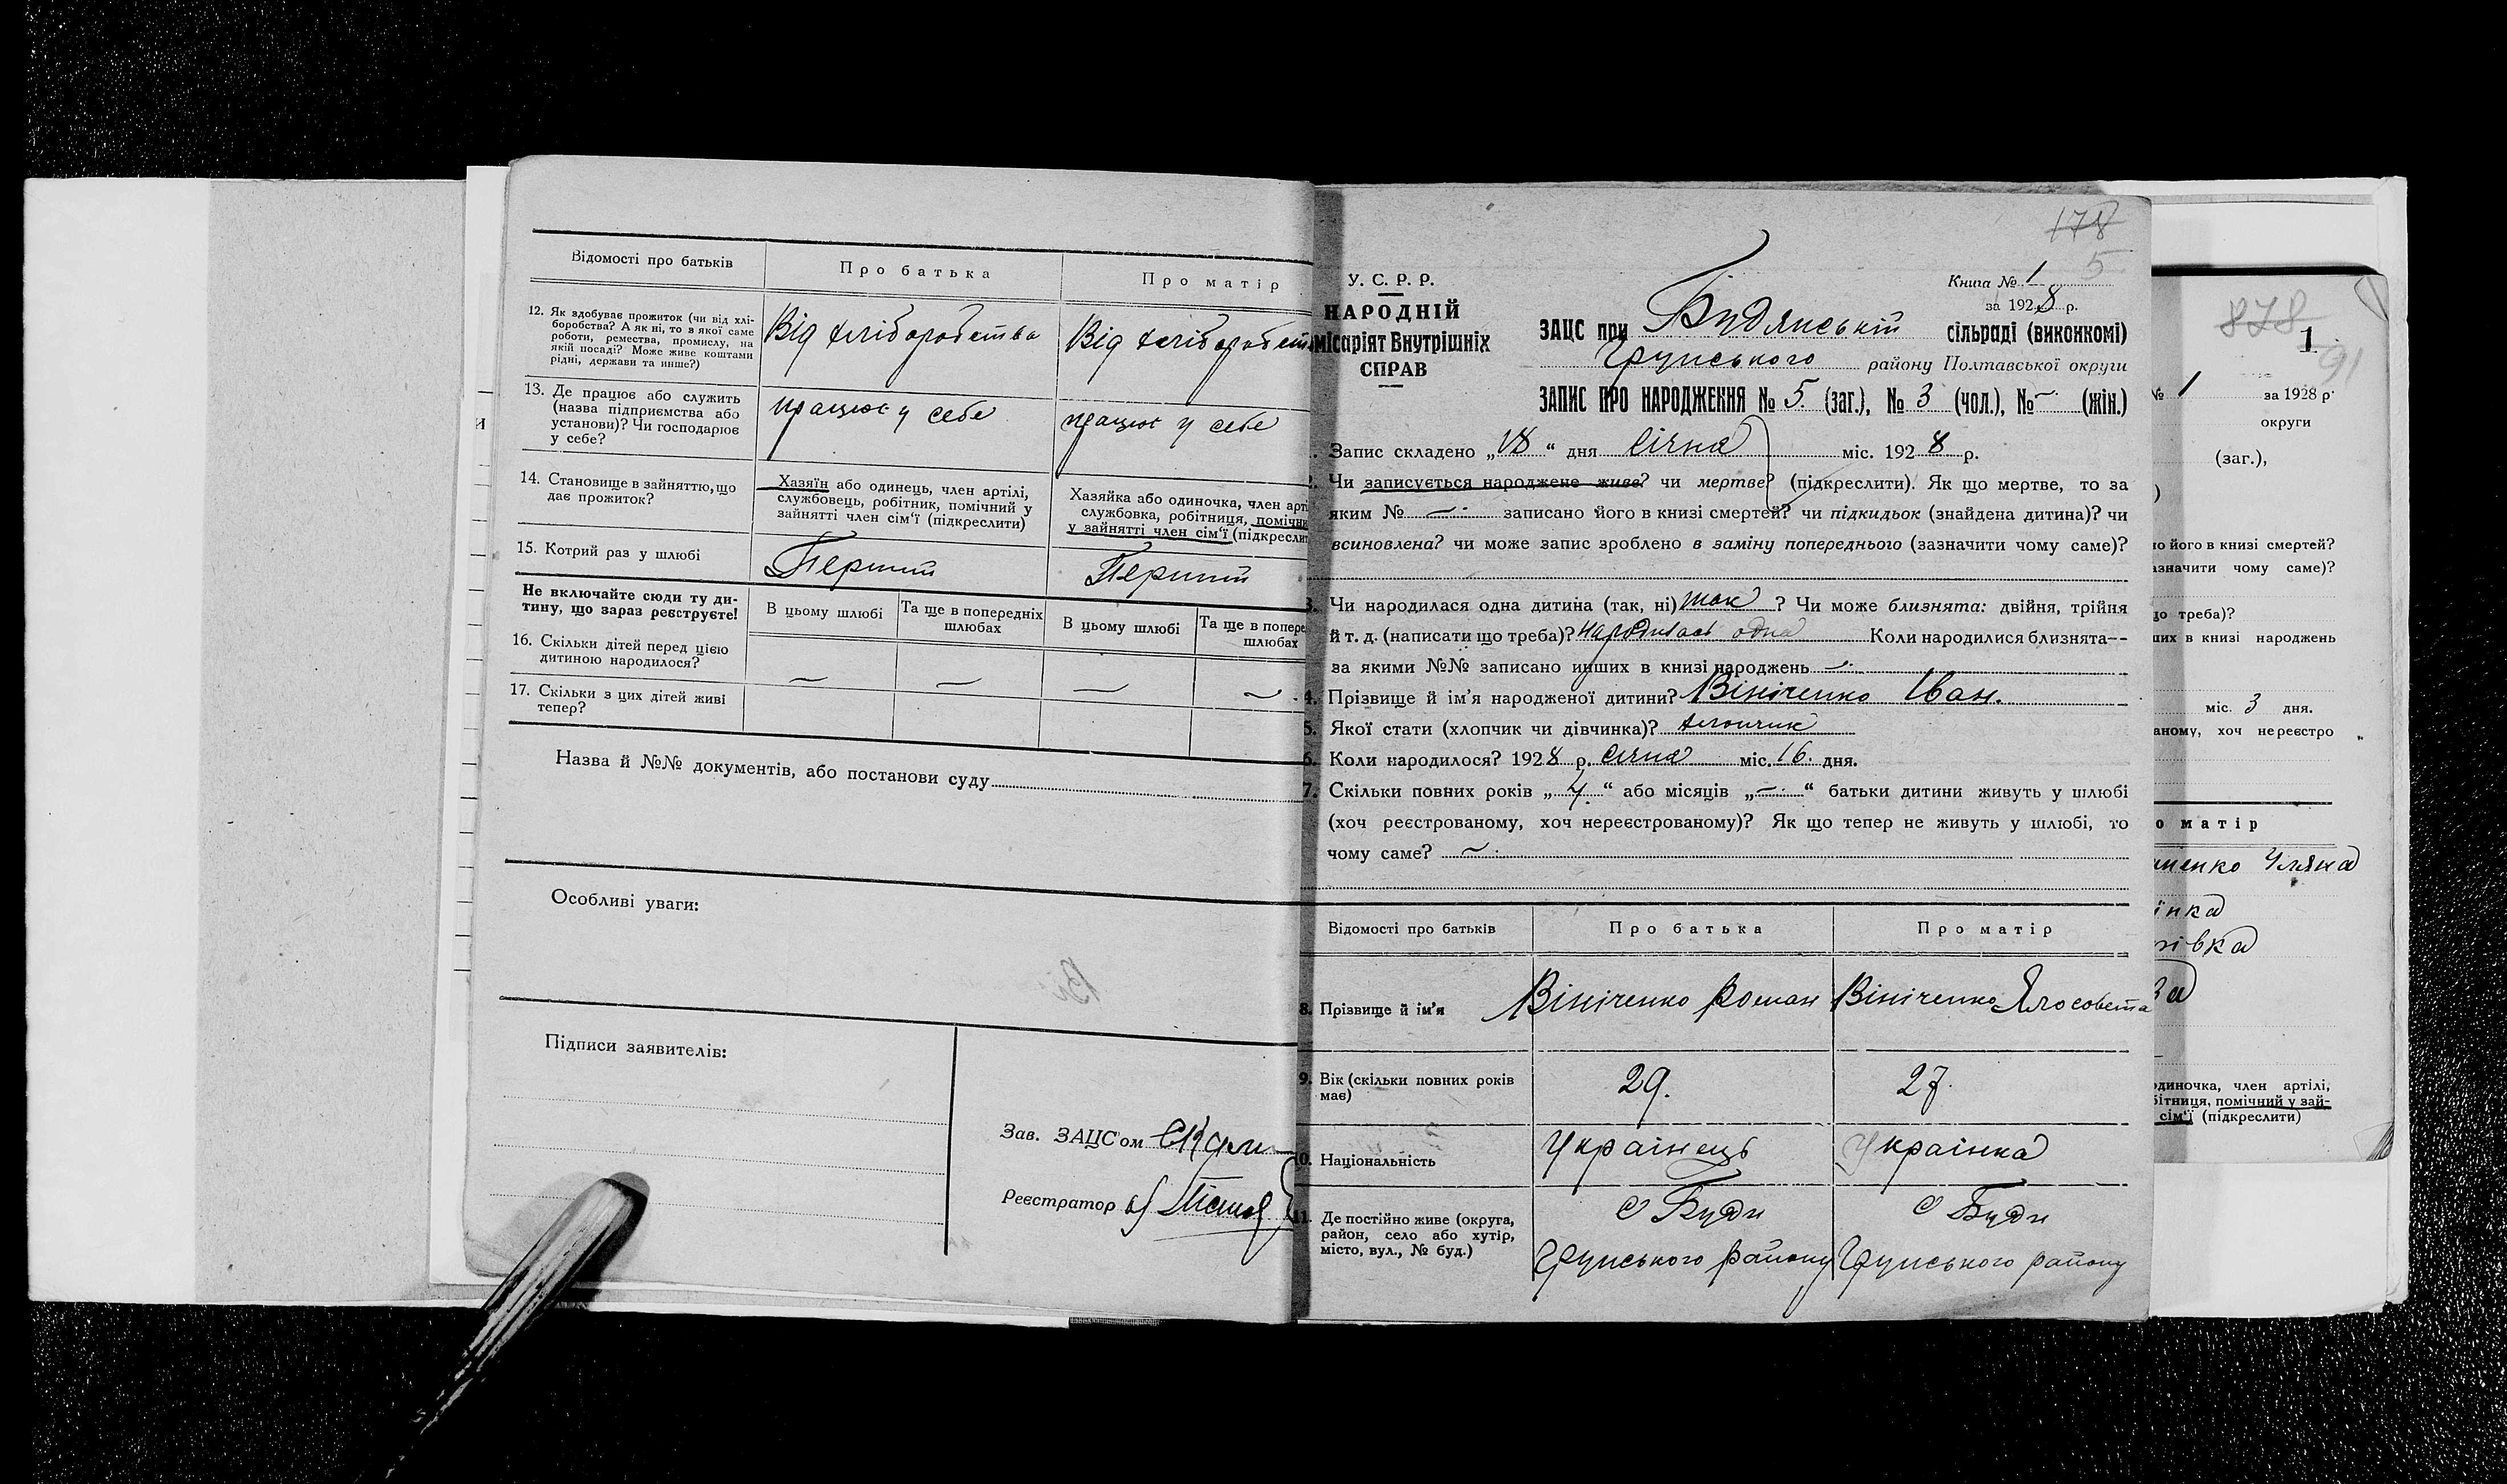 Відомості про батьків
Про батька
Про матір
12. Як здобуває прожиток (чи від хлі-
боробства? А як ні, то з якої саме
роботи, ремества, промислу, на
якій посаді? Може живе коштами
рідні, держави та инше?)
Від хліборобства
Від хліборобст
13. Де працює або служить
(назва підприємства або
установи)? Чи господарює
у себе?
працює у себе
працює у себе
14. Становище в зайняттю, що
дає прожиток?
Хазяїн або одинець, член артілі,
службовець, робітник, помічний у
зайнятті член сім'ї (підкреслити)
Хазяйка або одиночка, член арті
службовка, робітниця, помічни
у зайнятті член сім'ї (підкресли
15. Котрий раз у шлюбі
Перший
Перший
Не включайте сюди ту ди-
тину, що зараз реєструєте!
В цьому шлюбі
Та ще в попередніх
шлюбах
В цьому шлюбі
Та ще в попере
шлюбах
16. Скільки дітей перед цією
дитиною народилося?
— — — —
17. Скільки з цих дітей живі
тепер?
Назва й №№ документів, або постанови суду
Особливі уваги:
Підписи заявителів:
Зав. ЗАЦС'ом
Реєстратор
178
5
У. С. Р. Р.
НАРОДНІЙ
місаріят Внутрішніх
СПРАВ
Книга № 1
за 1928 р.
ЗАЦС при Будянській сільраді (виконкомі)
Грунського району Полтавської округи
ЗАПИС ПРО НАРОДЖЕННЯ № 5. (заг.), № 3 (чол.), № — (жін.)
Запис складено „18“ дня Січня міс. 1928 р.
Чи записується народжене живе? чи мертве? (підкреслити). Як що мертве, то за
яким № — записано його в книзі смертей? чи підкидьок (знайдена дитина)? чи
всиновлена? чи може запис зроблено в заміну попереднього (зазначити чому саме)?
Чи народилася одна дитина (так, ні) так ? Чи може близнята: двійня, трійня
й т. д. (написати що треба)? народилась одна Коли народилися близнята—
за якими №№ записано инших в книзі народжень —
4. Прізвище й ім'я народженої дитини? Вініченко Іван.
5. Якої стати (хлопчик чи дівчинка)? хлопчик
6. Коли народилося? 1928 р. січня міс. 16. дня.
7. Скільки повних років „4.“ або місяців „—“ батьки дитини живуть у шлюбі
(хоч реєстрованому, хоч нереєстрованому)? Як що тепер не живуть у шлюбі, то
чому саме? —
Відомості про батьків
Про батька
Про матір
8. Прізвище й ім'я
Вініченко Роман
Вініченко Ялосовета
9. Вік (скільки повних років
має)
29.
27.
10. Національність
Українець
Українка
11. Де постійно живе (округа,
район, село або хутір,
місто, вул., № буд.)
С Буди
Грунського району
С Буди
Грунського району
878
1
91
№ 1 за 1928 р.
округи
(заг.),
о його в книзі смертей?
значити чому саме)?
о треба)?
ших в книзі народжень
міс. 3 дня.
аному, хоч нереєстро
о матір
ненко Уляна
інка
івка
диночка, член артілі,
бітниця, помічний у зай-
сім'ї (підкреслити)